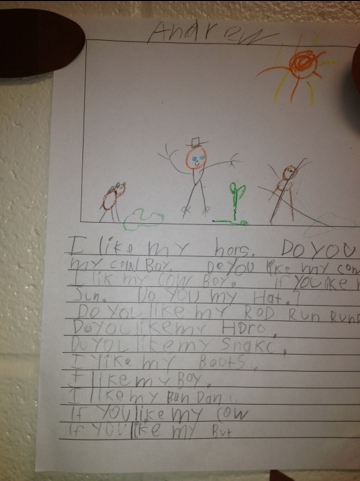 Andrew
I like my hors. Do you
my cowBoy. Do you like my cow
I lik my cow Boy. if you like m
Sun. Do You my Hat.?
Do You Like my ROD Run Runn
Do You like my
Do You like my Snake,
I like my Boots,
I like my Boy,
I like my Ban Dan
If You like my Cow
if You like my But